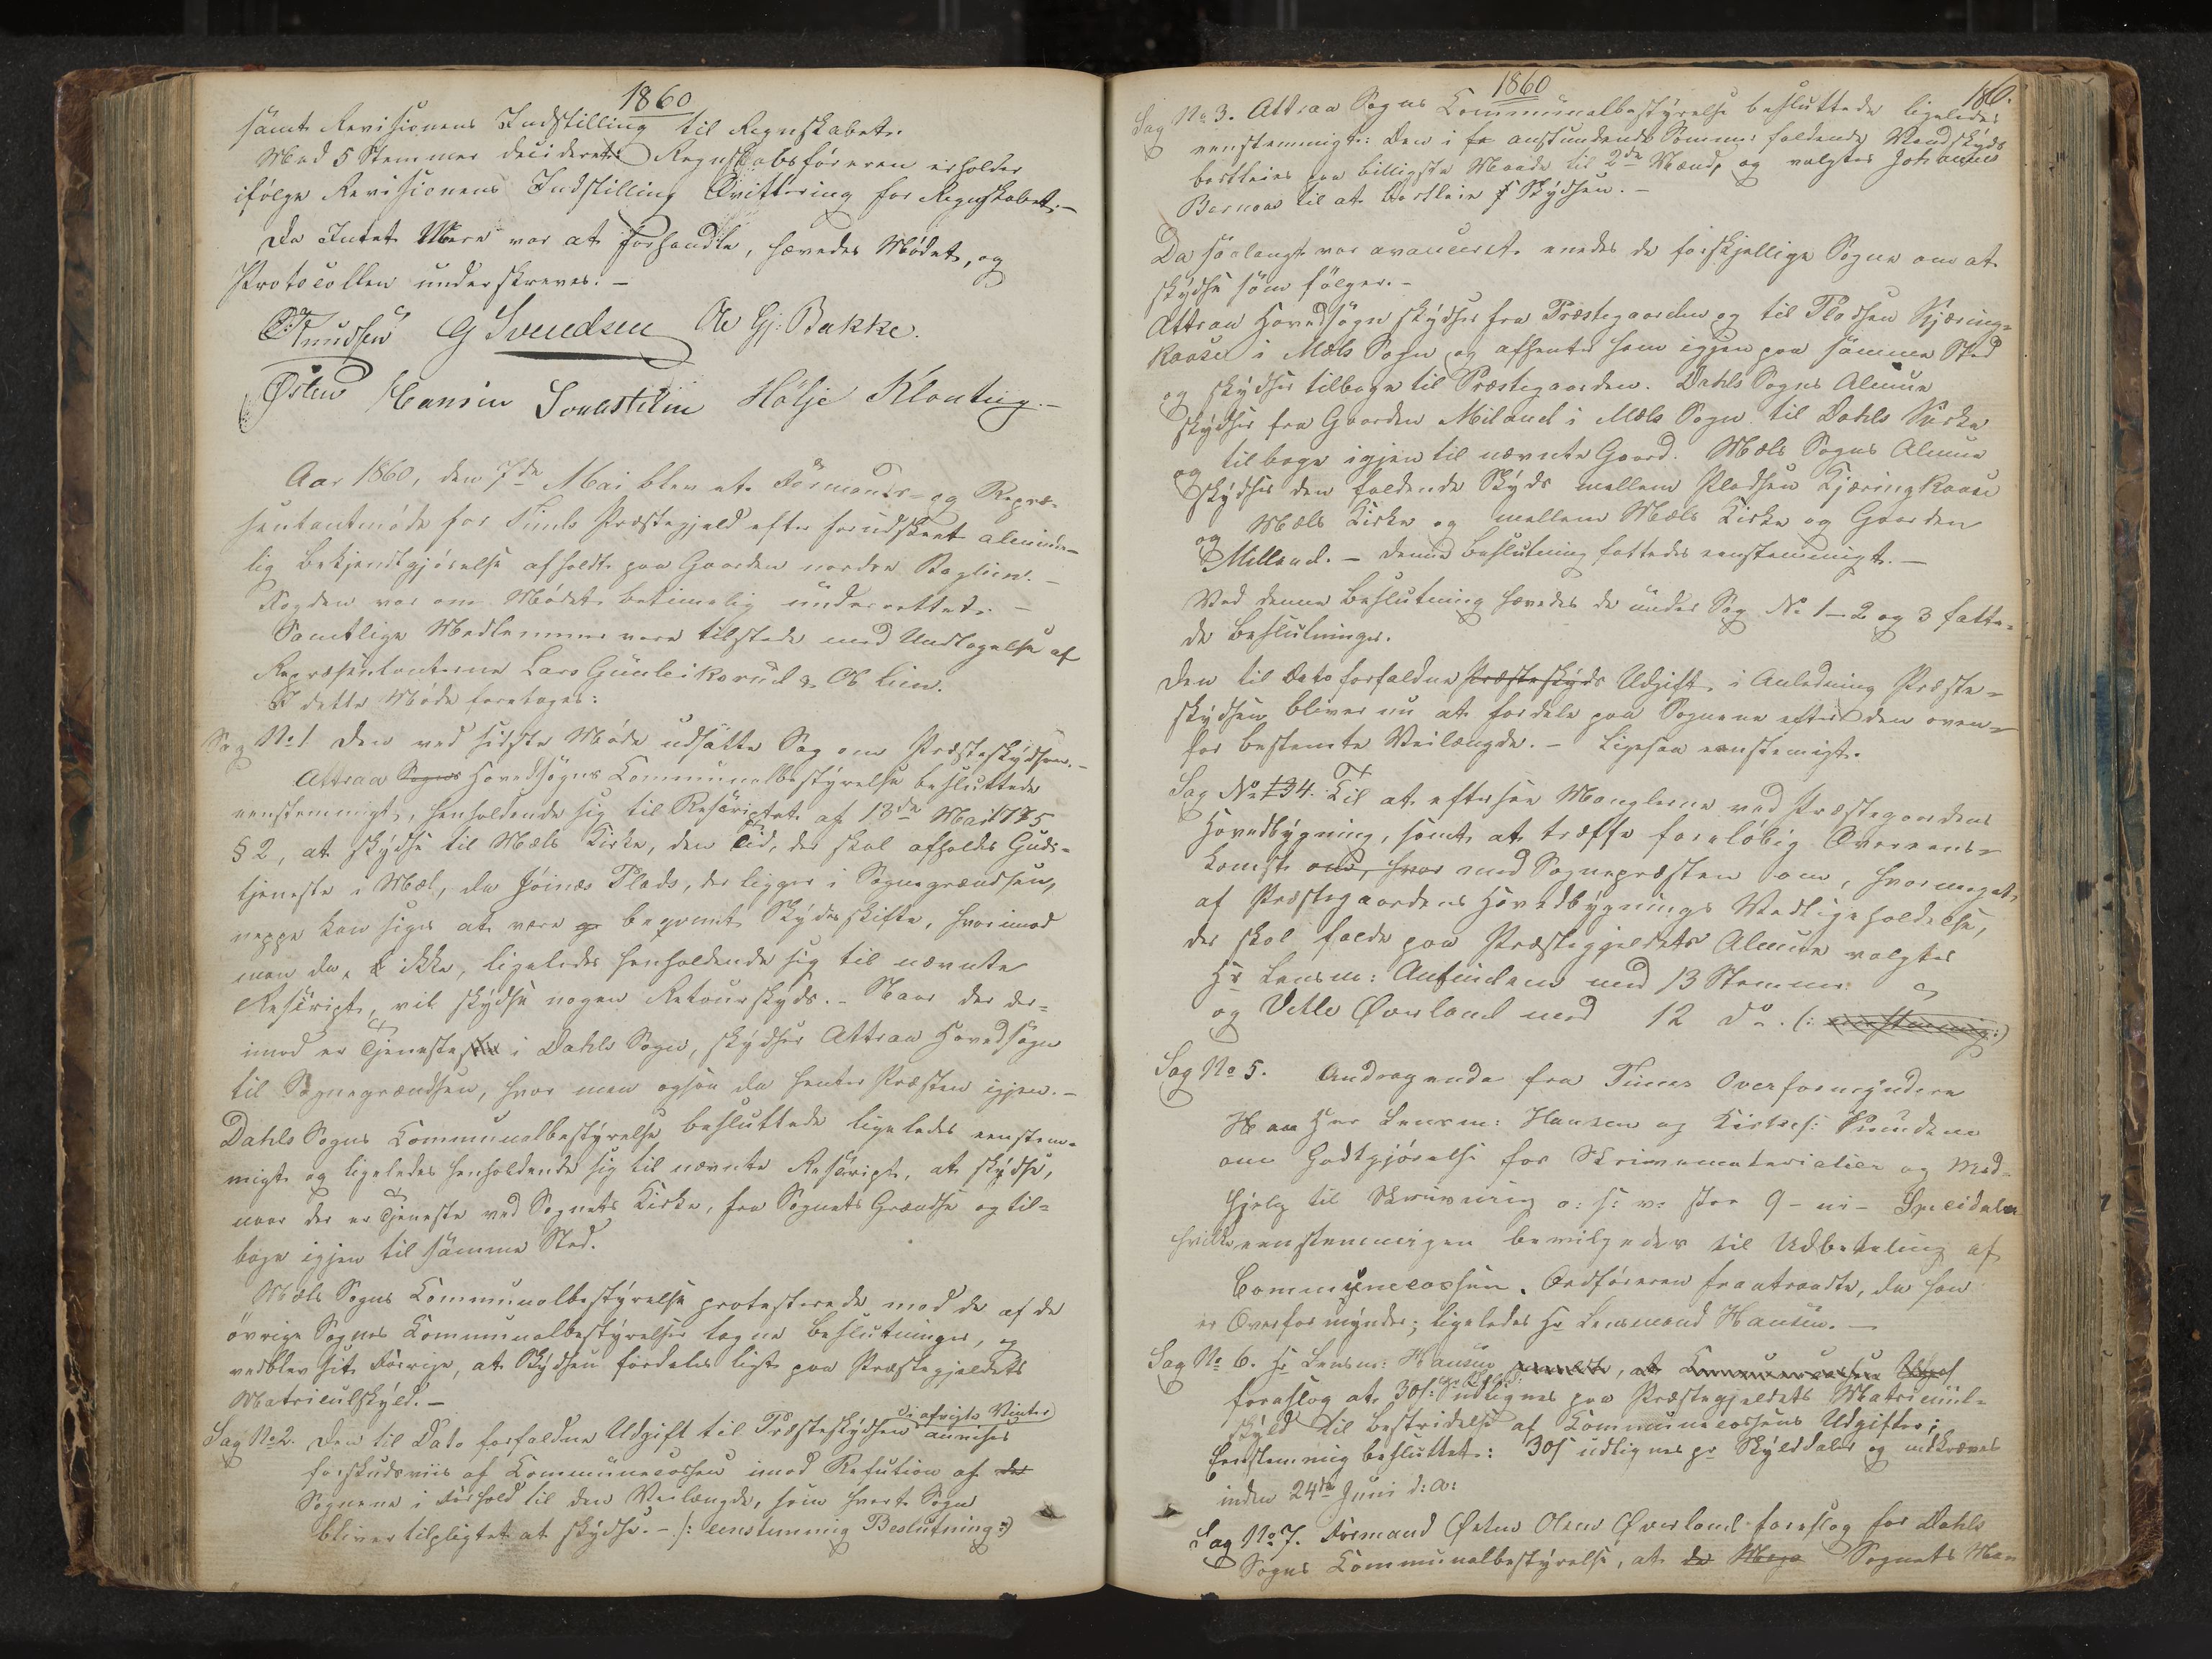 1860
samt Revisionens Indstilling til Regnskabet.
Med 5 Stemmer decideret: Regnskabsføreren erholder
ifølge Revisionens Indstilling Qvittering for Regnskabet.-
Da Intet Mere var at forhandle, hævedes Mødet, og
Protocollen underskreves. -
Knudsen G Svendsen Ole Gj: Bakke.
Østen Hansen Hølje Klonteig.-
Aar 1860, den 7de Mai blev et Formands- og Repræ-
sentantmøde for Tinds Præstegjeld efter forudskeet alminde-
lig Bekjendtgjørelse afholdt paa Gaarden nordre Bøglien.-
Fogden var om Mødet betimelig underrettet. -
Samtlige Medlemmer vare tilstede med Undtagelse af
Repræsentanterne Lars Gunleiksrud & Ol: Lien.
I dette Møde foretoges:
Sag No 1. Den ved sidste Møde udsatte Sag om Præsteskydsen.-
Attraa Sogns Hovedsogns Communalbestyrelse besluttede
eenstemmigt, henholdende sig til Rescriptet af 13de Mai 1775
§ 2, at skydse til Mæls Kirke, den Tid, der skal afholdes Guds-
tjeneste i Mæl, da Jøinæs Plads, der ligger i Sognegrændsen,
neppe kan siges at være g beqvemt Skydsskifte, hvorimod
man da, ikke, ligeledes henholdende sig til nævnte
Rescript, vil skydse nogen Retourskyds. - Naar der der-
imod er Tjeneste i Dahls Sogn, skydser Attraa Hovedsogn
til Sognegrændsen, hvor man ogsaa da henter Præsten igjen.-
Dahls Sogns Communalbestyrelse besluttede ligeledes eenstem-
migt og ligeledes henholdende sig til nævnte Rescript, at skydse,
naar der er Tjeneste ved Sognets Kirke, fra Sognets Grændse og til-
bage igjen til samme Sted.
Mæls Sogns Communalbestyrelse protesterede mod de af de
øvrige Sognes Communalbestyrelser tagne Beslutninger, og
vedblev sit Forrige, at Skydsen fordeles ligt paa Præstegjeldets
Matriculskyld. -
i afvigte Vinter
Sag No 2. Den til Dato forfaldne Udgift til Præsteskydsen anvises
forskudsviis af Communecassen imod Refution af de
Sognene i Forhold til den Veilængde, som hvert Sogn
bliver tilpligtet at skydse. - /: eenstemmig Beslutning:/
1860
186.
Sag No 3. Attraa Sogns Communalbestyrelse besluttede ligeledes
eenstemmigt: den i anstundende Sommer faldende Vandskyds
bortleies paa billigste Maade til 2de Mænd, og valgtes Johannes
Bernaas til at bortleie Skydsen. -
Da saalangt var avanceret enedes de forskjellige Sogne om at
skydse som følger. -
Attraa Hovedsogn skydser fra Præstegaarden og til Pladsen Kjæring-
kaase i Mæls Sogn og afhenter ham igjen paa samme Sted
og skydser tilbage til Præstegaarden. Dahls Sogns Almue
skydser fra Gaarden Miland i Mæls Sogn til Dahls Kirke
og tilbage igjen til nævnte Gaard. Mæls Sogns Almue
skydser den faldende Skyds mellem Pladsen Kjæringkaase
og Mæls Kirke og mellem Mæls Kirke og Gaarden
Milland. - Denne Beslutning fattedes eenstemmigt. -
Ved denne Beslutning hævedes de under Sag No 1-2 og 3 fatte-
de Beslutninger.
Den til Dato forfaldne Præsteskyds Udgift i Anledning Præste-
skydsen bliver nu at fordele paa Sognene efter den oven-
for bestemte Veilængde. - Ligesaa eenstemigt.
Sag No 4. Til at eftersee Manglerne ved Præstegaardens
Hovedbygning, samt at træffe foreløbig Overeens-
komst om, hvor med Sognepræsten om, hvormeget
af Præstegaardens Hovedbygnings Vedligeholdelse,
der skal falde paa Præstegjeldets Almue valgtes
Hr Lensm: Anfindsen med 13 Stemmer
og Vetle Øverland med 12 do. (: eenstemmig:)
Sag No 5. Andragende fra Tinns Overformyndere
Herr Lensm: Hansen og Kirkes: Knudsen
om Godtgjørelse for Skrivematerialier og Med-
hjelp til Skrivning o: s: v: stor 9 - ni - Specidaler
hvilke eenstemmigen bevilgedes til Udbetaling af
Communecassen. Ordføreren fraatraadte, da han
er Overformynder; ligeledes Hr Lensmand Hansen. -
Sag No 6. Hr Lensm: Hansen at Communecassen
foreslog at 30 s: udlignes paa Præstegjeldets Matricul-
skyld til Bestridelse af Communecassens Udgifter;
Eenstemmig besluttet: 30 s udlignes pr Skylddaler og indkræves
inden 24de Juni d: A:
Sag No 7. Formand Østen Olsen Øverland foreslog for Dahls
Sogns Communalbestyrelse, at de Sognets